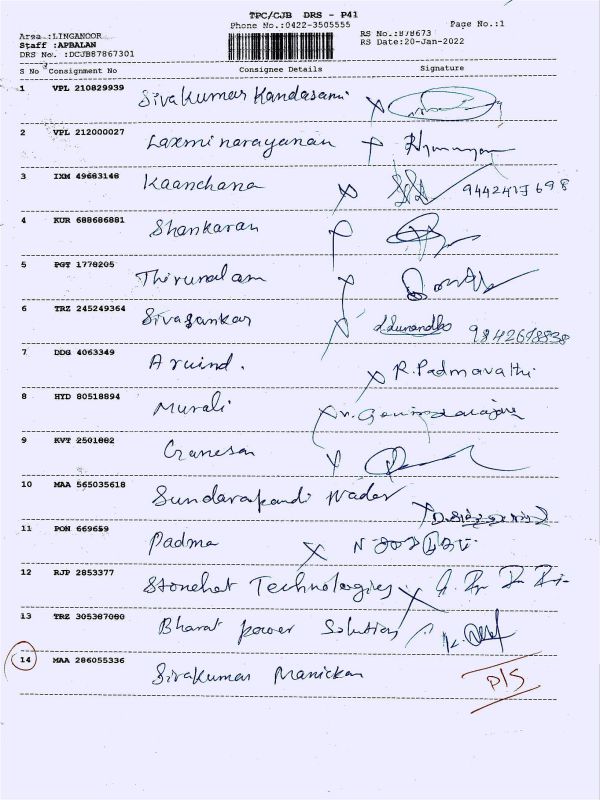 TPC/CJB DRS - P41
Phone No.:0422-3505555 Page No.:1
Area :LINGANOOR RS No.:878673
Staff :APBALAN RS Date:20-Jan-2022
DRS No. :DCJB87867301
S No Consignment No Consignee Details Signature
1 VPL 210829939 Sivakumar Kandasami X
2 VPL 212000027 Laxminarayanan X
3 IXM 49683148 Kaanchana X
4 KUR 688686881 Shankaran
5 PGT 1778205 X
6 TRZ 245249364 Sivasankar X 9842698838
7 DDG 4063349 Aruind. X R.Padmavathi
8 HYD 80518894 Murali X
9 KVT 2501882 Ganesan X
10 MAA 565035618 X
11 PON 669659 Padma X
12 RJP 2853377 Stonehot Technologies X
13 TRZ 305387080 Bharat power Solution
14 MAA 286055336 Sivakumar Manickan P/S